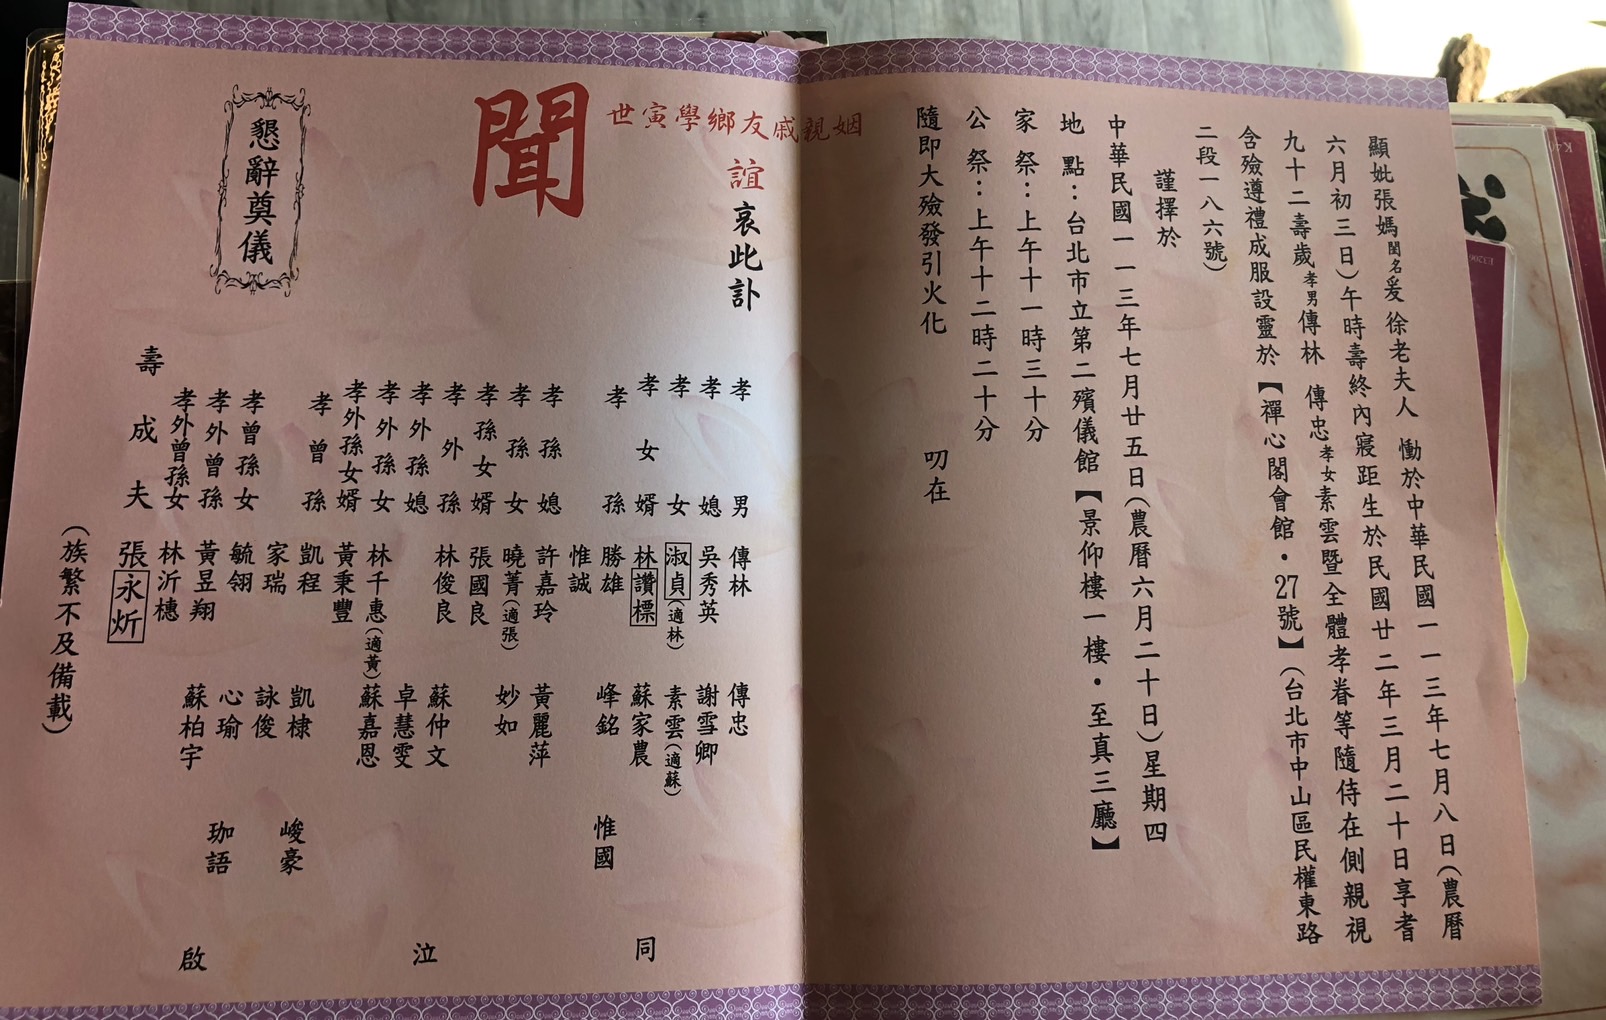 顯妣張媽閨名爰徐老夫人 慟於中華民國一一三年七月八日(農曆
六月初三日)午時壽終內寢距生於民國廿二年三月二十日享耆
九十二壽歲孝男傳林 傳忠孝女素雲暨全體孝眷等隨侍在側親視
含殮遵禮成服設靈於【禪心閣會館・27號】(台北市中山區民權東路
二段一八六號)
謹擇於
中華民國一一三年七月廿五日(農曆六月二十日)星期四
地 點:台北市立第二殯儀館【景仰樓一樓・至真三廳】
家 祭:上午十一時三十分
公 祭:上午十二時二十分
隨即大殮發引火化 叨在
姻親戚友鄉學寅世
誼 哀此訃
聞
懇辭奠儀
孝男 傳林 傳忠
孝媳 吳秀英 謝雪卿
孝女 淑貞(適林) 素雲(適蘇)
孝女婿 林讚標 蘇家農 同
孝孫 勝雄 峰銘 惟國
惟誠
孝孫媳 許嘉玲 黃麗萍
孝孫女 曉菁(適張) 妙如
孝孫女婿 張國良
孝外孫 林俊良 蘇仲文
孝外孫媳 卓慧雯 泣
孝外孫女 林千惠(適黃) 蘇嘉恩
孝外孫女婿 黃秉豐
孝曾孫 凱程 凱棣 峻豪
家瑞 詠俊
孝曾孫女 毓翎 心瑜 珈語
孝外曾孫 黃昱翔 蘇柏宇
孝外曾孫女 林沂橞 啟
壽成夫 張永炘
(族繁不及備載)